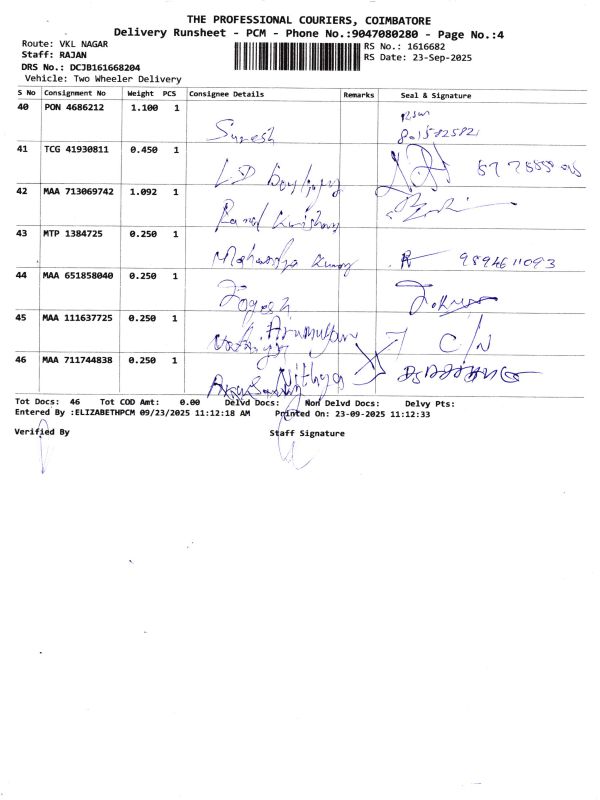 THE PROFESSIONAL COURIERS, COIMBATORE
Delivery Runsheet - PCM - Phone No.:9047080280 - Page No.:4
Route: VKL NAGAR
RS No.: 1616682
Staff: RAJAN
RS Date: 23-Sep-2025
DRS No.: DCJB161668204
Vehicle: Two Wheeler Delivery
S No Consignment No Weight PCS Consignee Details Remarks Seal & Signature
40 PON 4686212 1.100 1
Suresh
41 TCG 41930811 0.450 1
42 MAA 713069742 1.092 1
43 MTP 1384725 0.250 1
9894611093
44 MAA 651858040 0.250 1
Yogesh
45 MAA 111637725 0.250 1
C/N
46 MAA 711744838 0.250 1
Nithya
Tot Docs: 46 Tot COD Amt: 0.00 Delvd Docs: Non Delvd Docs: Delvy Pts:
Entered By :ELIZABETHPCM 09/23/2025 11:12:18 AM Printed On: 23-09-2025 11:12:33
Verified By Staff Signature